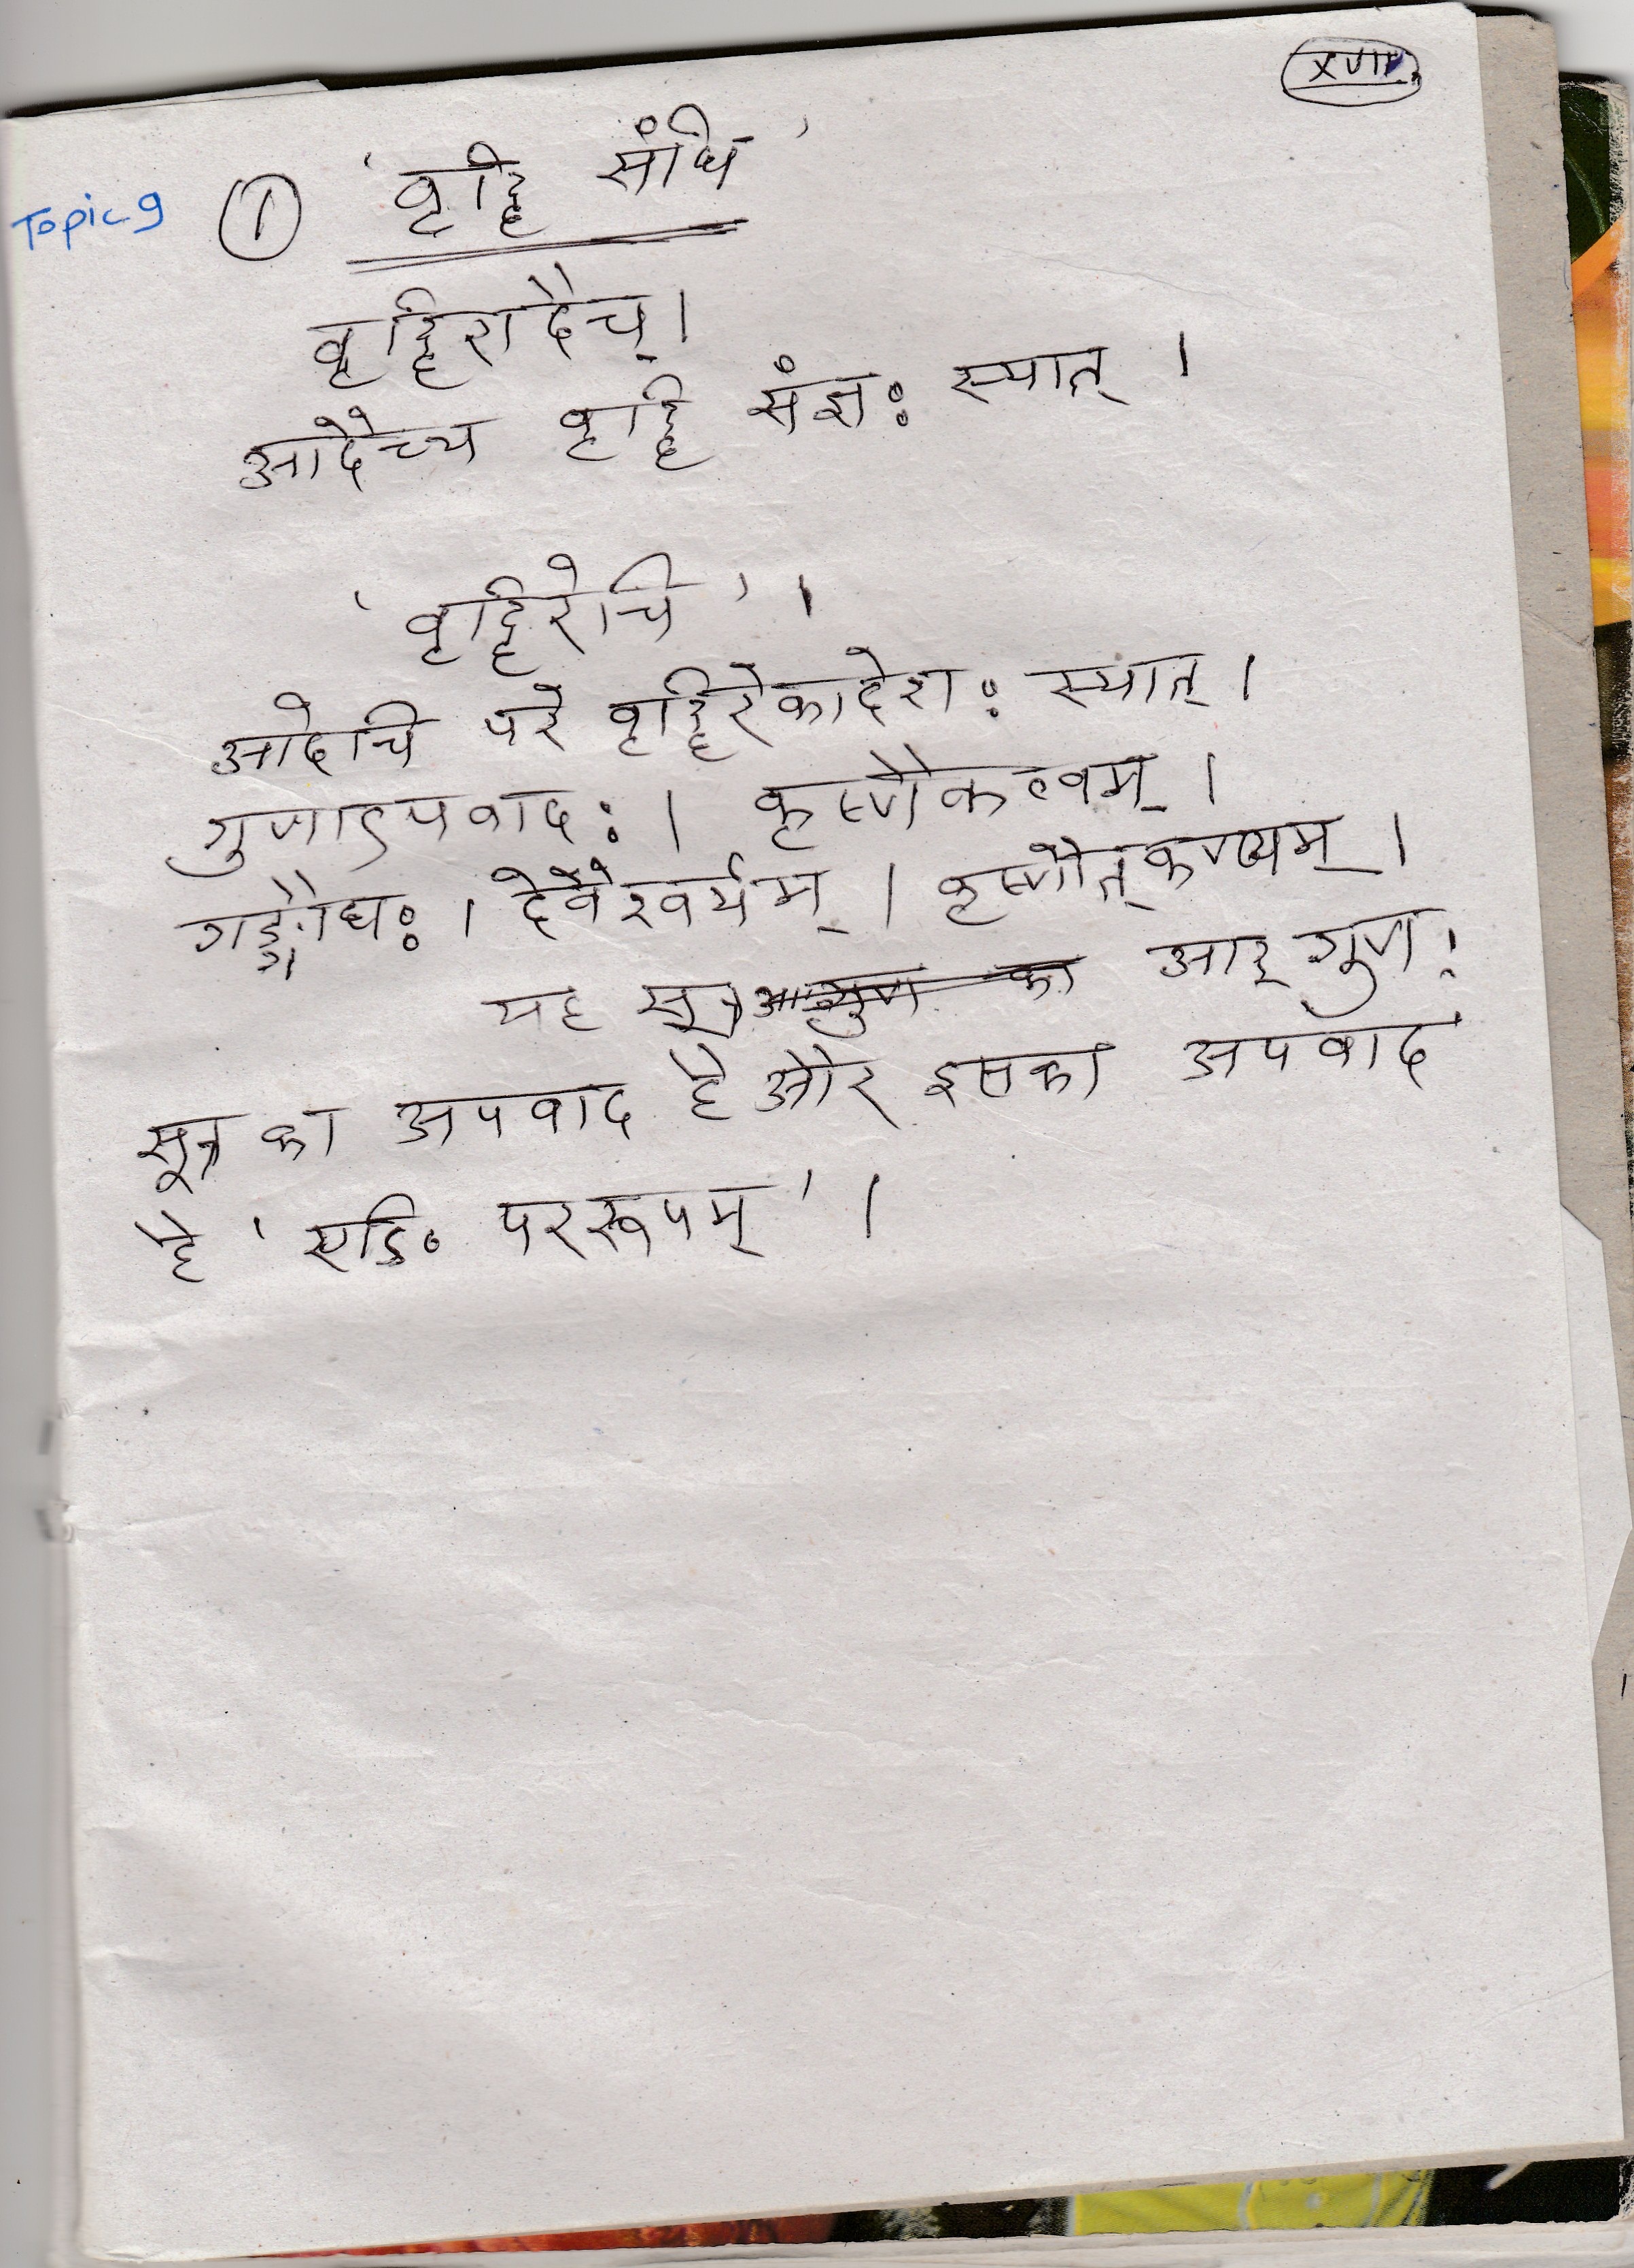 Topic 9 ① 'वृद्धि संधि'
वृद्धिरादैच्।
आदैच्य वृद्धि संज्ञः स्यात्।
'वृद्धिरेचि'।
आदेचि परे वृद्धिरेकादेशः स्यात्।
गुणाऽपवादः। कृष्णैकत्वम्।
गङ्गौघः। देवैश्वर्यम्। कृष्णौत्कण्ठ्यम्।
यह सूत्र आद् गुण:
सूत्र का अपवाद है और इसका अपवाद
है 'एङि॰ पररूपम्'।